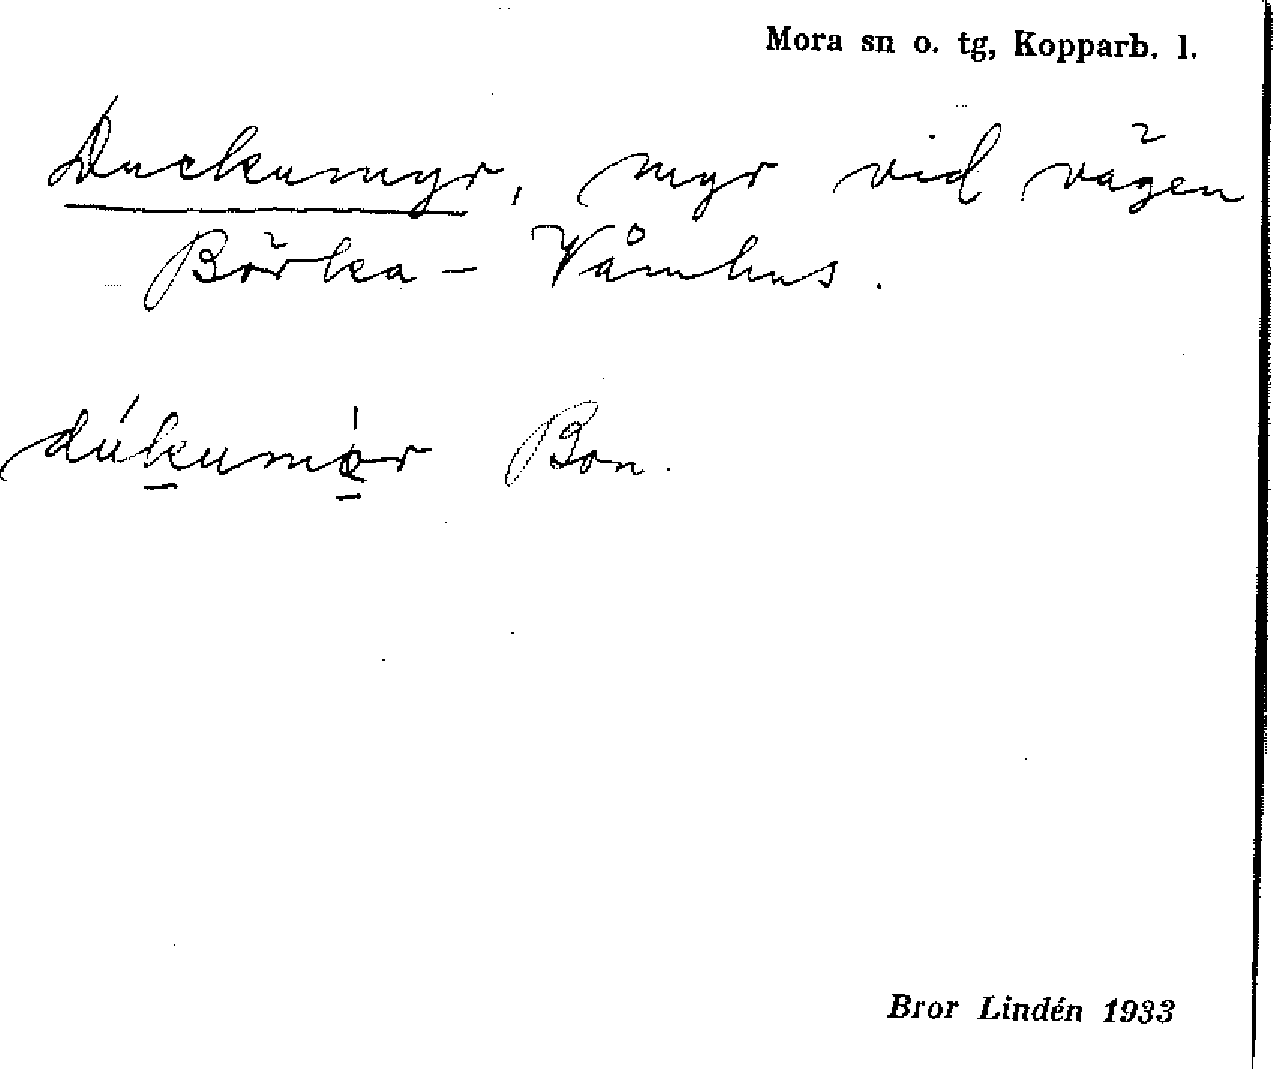 Mora sn o. tg, Kopparb. l.
Duckumyr, myr vid vägen
Börka – Våmhus.
Bon.
Bror Lindén 1933